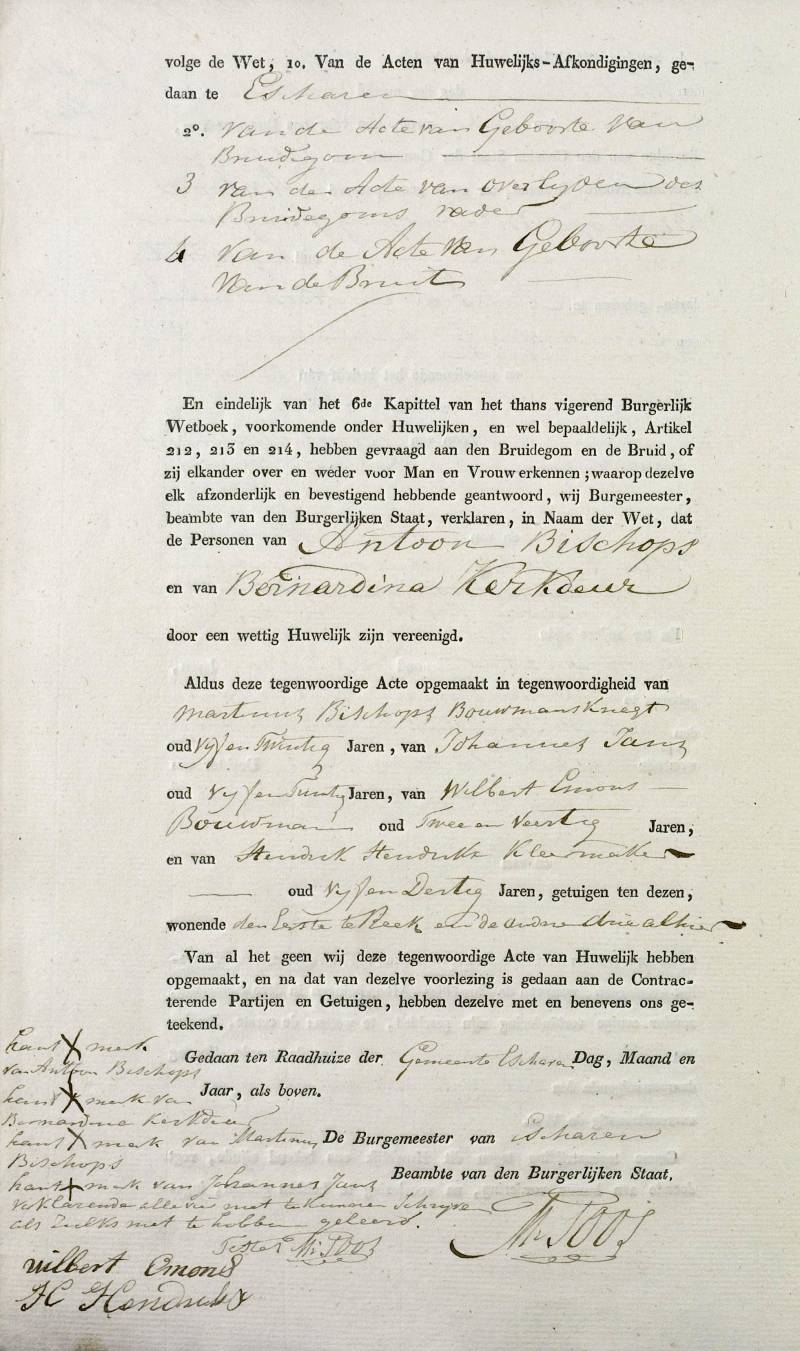 volge de Wet, 1o. Van de Acten van Huwelijks-Afkondigingen, ge-
daan te Escharen
2o. van de Acte van Geboorte van
Bruidegom
3 van der Acte van overlyden des
Bruidegoms vader
4 van de Acte van Geboorte
van de Bruit
En eindelijk van het 6de Kapittel van het thans vigerend Burgerlijk
Wetboek, voorkomende onder Huwelijken, en wel bepaaldelijk, Artikel
212, 213 en 214, hebben gevraagd aan den Bruidegom en de Bruid, of
zij elkander over en weder voor Man en Vrouw erkennen; waarop dezelve
elk afzonderlijk en bevestigend hebbende geantwoord, wij Burgemeester,
beambte van den Burgerlijken Staat, verklaren, in Naam der Wet, dat
de Personen van Antoon Bischops
en van Bernardina Kerkdeur
door een wettig Huwelijk zijn vereenigd.
Aldus deze tegenwoordige Acte opgemaakt in tegenwoordigheid van
Martinus Bischops Bouwmansknegt
oud Vyf en Twintig Jaren, van Johannes Jans
oud Vyf en Jaren, van Wilbert Emons
Bouwman oud Twee en Veertig Jaren,
en van Hendrik Hendriks Kleermaker
oud Vyf en Dertig Jaren, getuigen ten dezen,
wonende den Eerste te Reek en de andre drie alhier
Van al het geen wij deze tegenwoordige Acte van Huwelijk hebben
opgemaakt, en na dat van dezelve voorlezing is gedaan aan de Contrac-
terende Partijen en Getuigen, hebben dezelve met en benevens ons ge-
teekend.
Gedaan ten Raadhuize der Gemeente Escharen Dag, Maand en
Jaar, als boven.
De Burgemeester van Escharen
Beambte van den Burgerlijken Staat,
hant X merk
van Antoon Bischops
hant X merk van
Bernardina Kerkdeur
hant X merk van Martinus
Bischops
hant X merk van Johannes Jans
verklarende alle vier niet te kunnen Schryven
als Zulks niet te hebben geleerd.
Teste
Wilbert Emons
H Hendriks